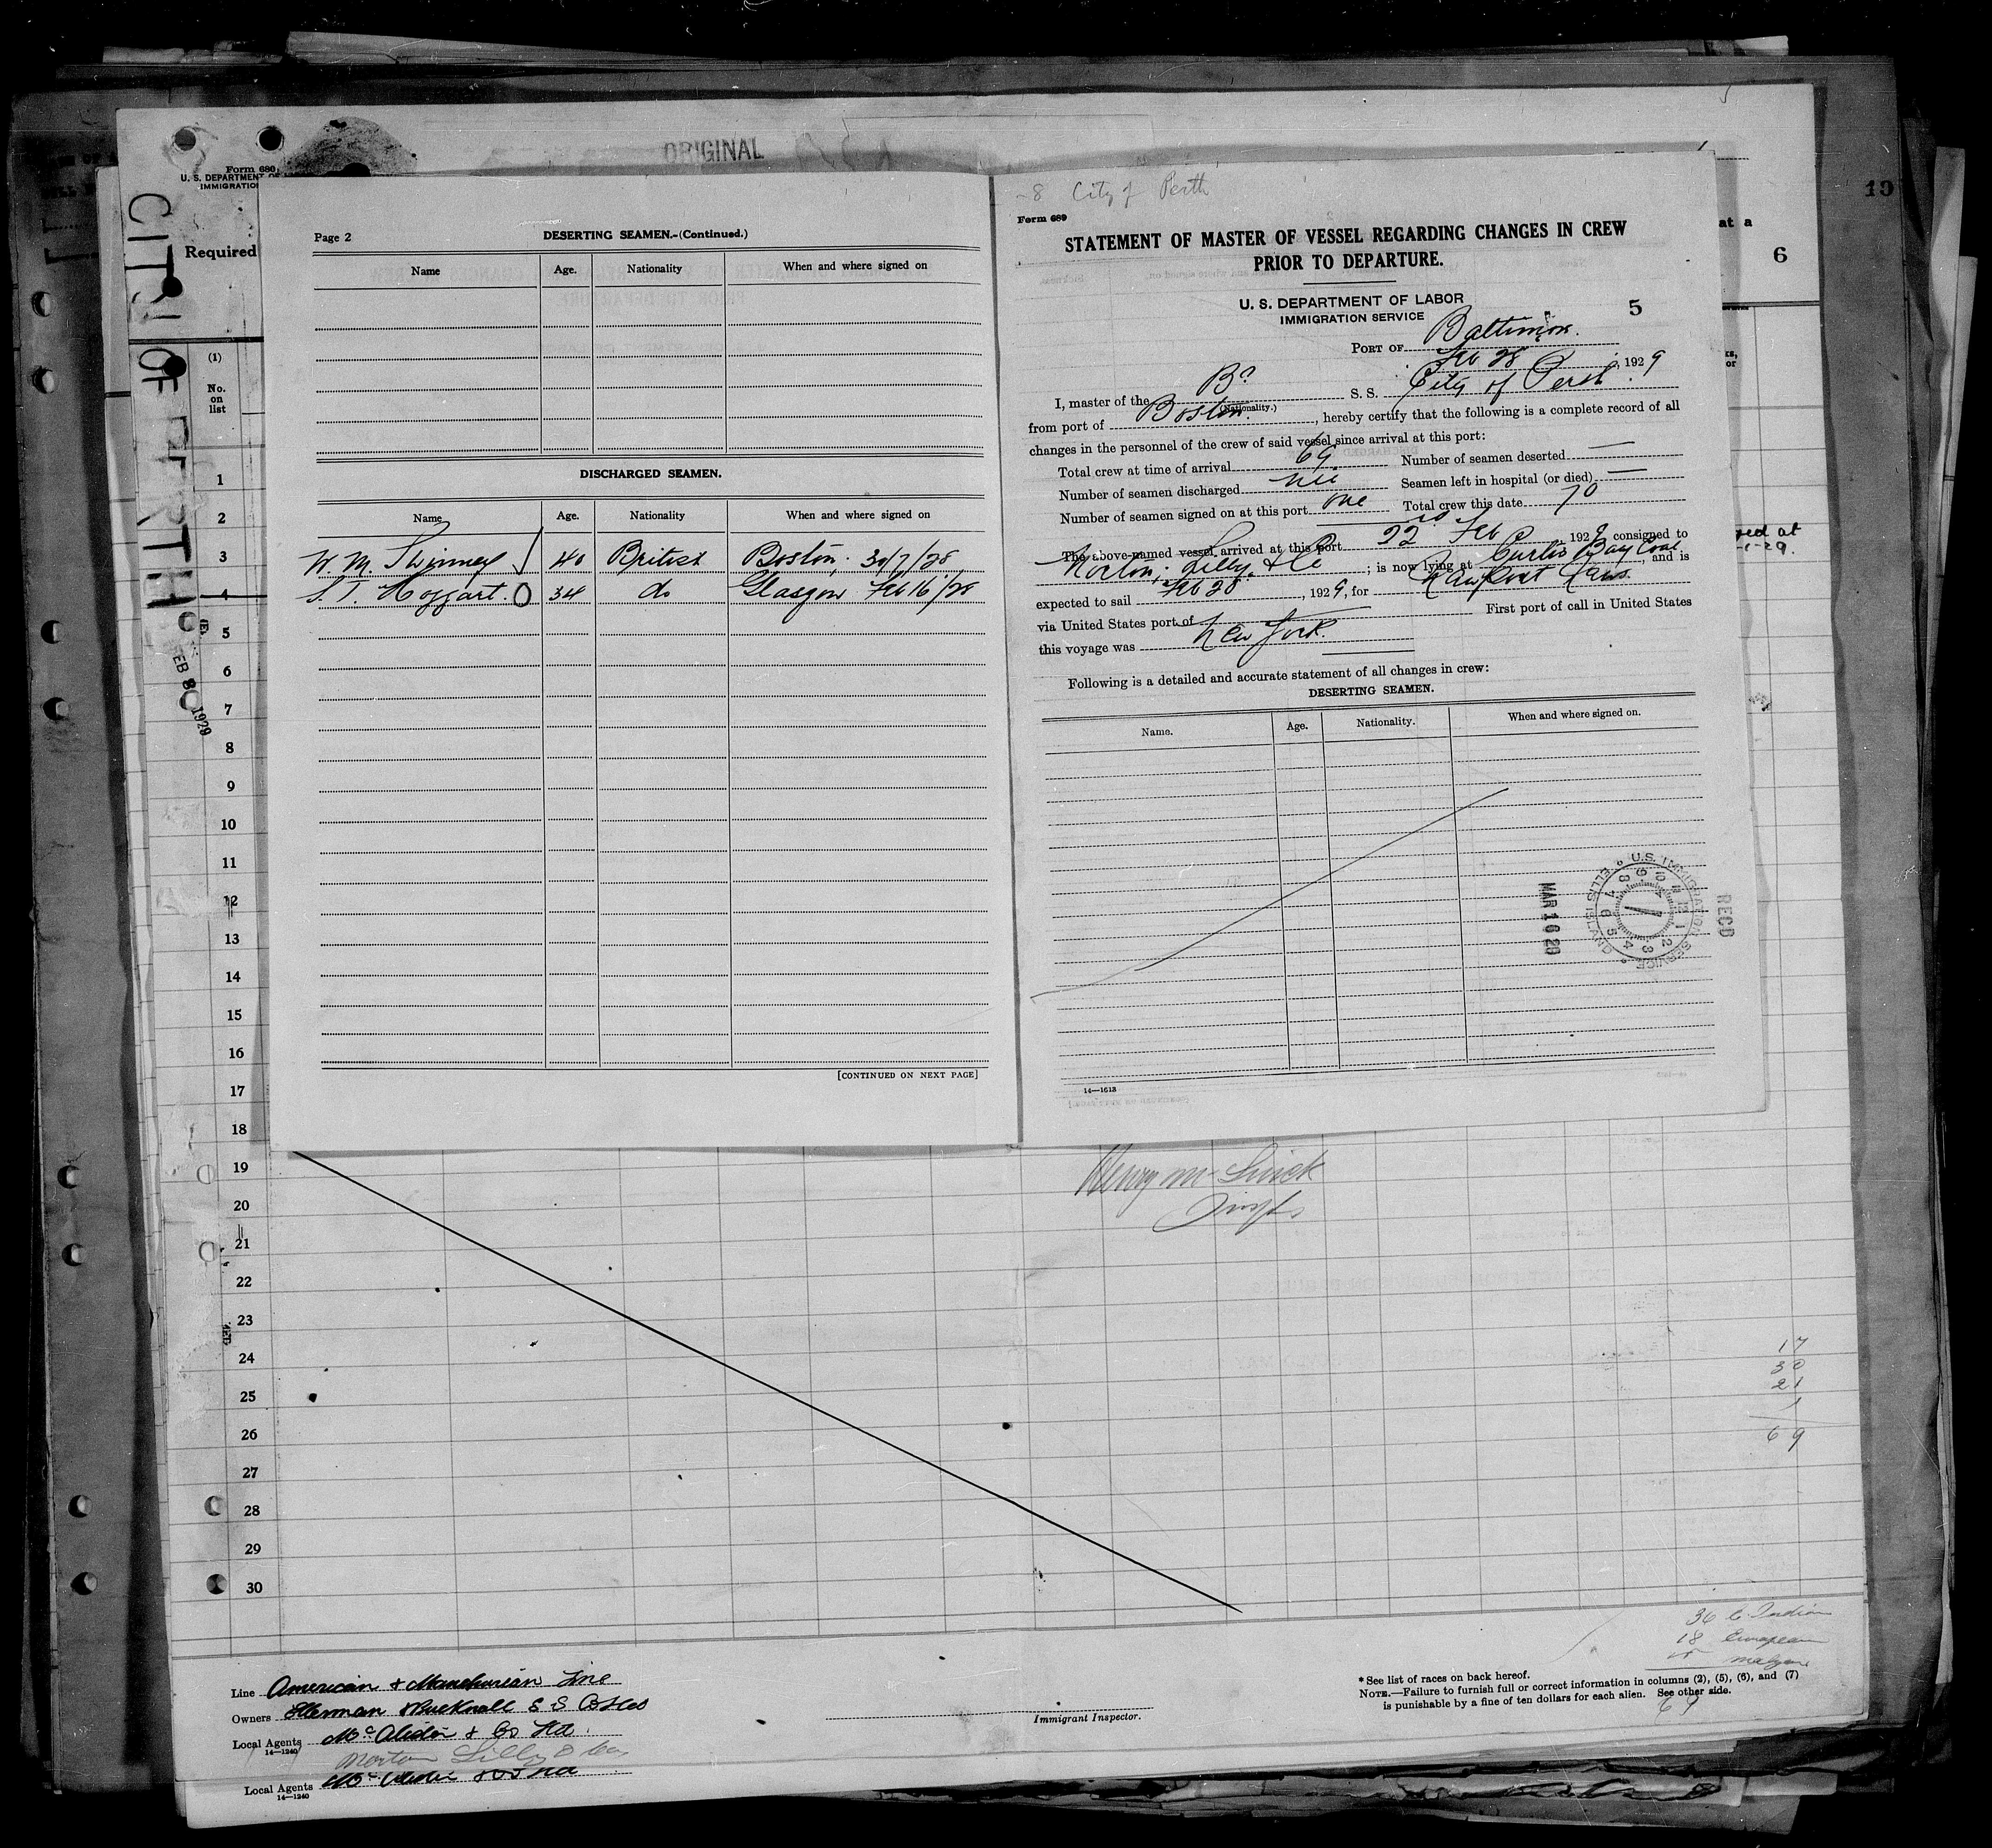 ORIGINAL
Form 680
U. S. DEPARTMENT OF
IMMIGRATION
Required
CITY OF PERTH
FEB 8 1929
(1)
No.
on
list
1
2
3
4
5
6
7
8
9
10
11
12
13
14
15
16
17
18
19
20
21
22
23
24
25
26
27
28
29
30
Page 2
DESERTING SEAMEN.-(Continued.)
Name Age. Nationality When and where signed on
DISCHARGED SEAMEN.
Name Age. Nationality When and where signed on
W. M. Skinner 40 British Boston, 30/7/28
S. T. Hoggart. 34 do Glasgow Feb 16/28
[CONTINUED ON NEXT PAGE]
-8 City of Perth
Form 689
STATEMENT OF MASTER OF VESSEL REGARDING CHANGES IN CREW
PRIOR TO DEPARTURE.
U. S. DEPARTMENT OF LABOR
IMMIGRATION SERVICE
5
PORT OF Baltimore.
Feb 28, 1929
I, master of the Br S. S. City of Perth.
(Nationality.)
from port of Boston., hereby certify that the following is a complete record of all
changes in the personnel of the crew of said vessel since arrival at this port:
Total crew at time of arrival 69 Number of seamen deserted —
Number of seamen discharged nil Seamen left in hospital (or died) —
Number of seamen signed on at this port one Total crew this date 70
The above-named vessel arrived at this port 22 Feb, 1929 consigned to
Norton, Lilly & Co; is now lying at Curtis Bay Coal, and is
expected to sail Feb 28, 1929, for Newport News.
via United States port of — First port of call in United States
this voyage was New York.
Following is a detailed and accurate statement of all changes in crew:
DESERTING SEAMEN.
Name. Age. Nationality. When and where signed on.
U.S. IMMIGRATION SERVICE ELLIS ISLAND
RECD
MAR 16 29
14—1613
at a
6
19
Henry M
17
30
21
1
69
36 E. Indian
18 European
15
69
Line American & Manchurian Line
Owners Ellerman & Bucknall S S Co Ltd
Local Agents McAlister & Co Ltd
14—1240
Norton Lilly & Co
Local Agents
14—1240
Immigrant Inspector.
* See list of races on back hereof.
NOTE.—Failure to furnish full or correct information in columns (2), (5), (6), and (7)
is punishable by a fine of ten dollars for each alien. See other side.